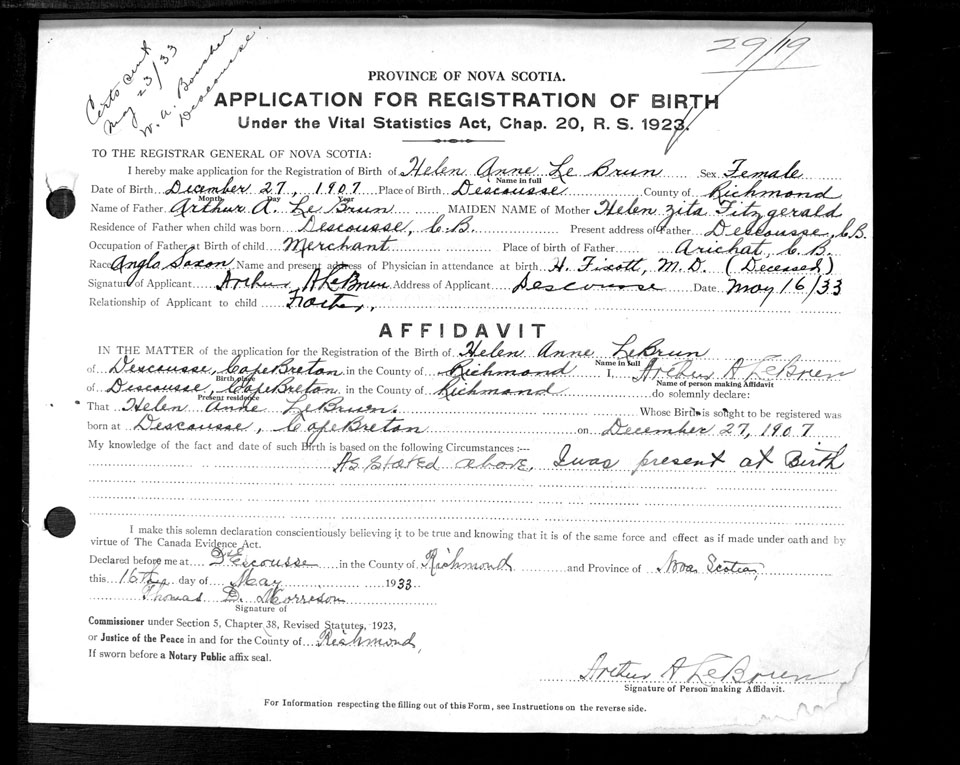 Certs sent
May 23/33
W. A. Boucher
Descousse.
29/19
PROVINCE OF NOVA SCOTIA.
APPLICATION FOR REGISTRATION OF BIRTH
Under the Vital Statistics Act, Chap. 20, R. S. 1923.
TO THE REGISTRAR GENERAL OF NOVA SCOTIA:
I hereby make application for the Registration of Birth of Helen Anne Le Brun Sex Female
Name in full
Date of Birth December 27, 1907 Place of Birth Descousse County of Richmond
Month Day Year
Name of Father Arthur A. Le Brun MAIDEN NAME of Mother Helen Zita Fitzgerald
Residence of Father when child was born Descousse, C.B. Present address of Father Descousse, C.B.
Occupation of Father at Birth of child Merchant Place of birth of Father Arichat, C.B.
Race Anglo Saxon Name and present address of Physician in attendance at birth H. Fixott, M.D. (Deceased)
Signature of Applicant Arthur A LeBrun Address of Applicant Descousse Date May 16/33
Relationship of Applicant to child Father,
AFFIDAVIT
IN THE MATTER of the application for the Registration of the Birth of Helen Anne LeBrun
Name in full
of Descousse, Cape Breton in the County of Richmond I, Arthur A LeBrun
Birth place Name of person making Affidavit
of Descousse, Cape Breton in the County of Richmond do solemnly declare:
Present residence
That Helen Anne LeBrun. Whose Birth is sought to be registered was
born at Descousse, Cape Breton on December 27, 1907
My knowledge of the fact and date of such Birth is based on the following Circumstances :—
As stated above. I was present at Birth
I make this solemn declaration conscientiously believing it to be true and knowing that it is of the same force and effect as if made under oath and by
virtue of The Canada Evidence Act.
Declared before me at Descousse in the County of Richmond and Province of Nova Scotia,
this 16th day of May 1933
Thomas D. Morrison
Signature of
Commissioner under Section 5, Chapter 38, Revised Statutes, 1923,
or Justice of the Peace in and for the County of Richmond,
If sworn before a Notary Public affix seal.
Arthur A LeBrun
Signature of Person making Affidavit.
For Information respecting the filling out of this Form, see Instructions on the reverse side.